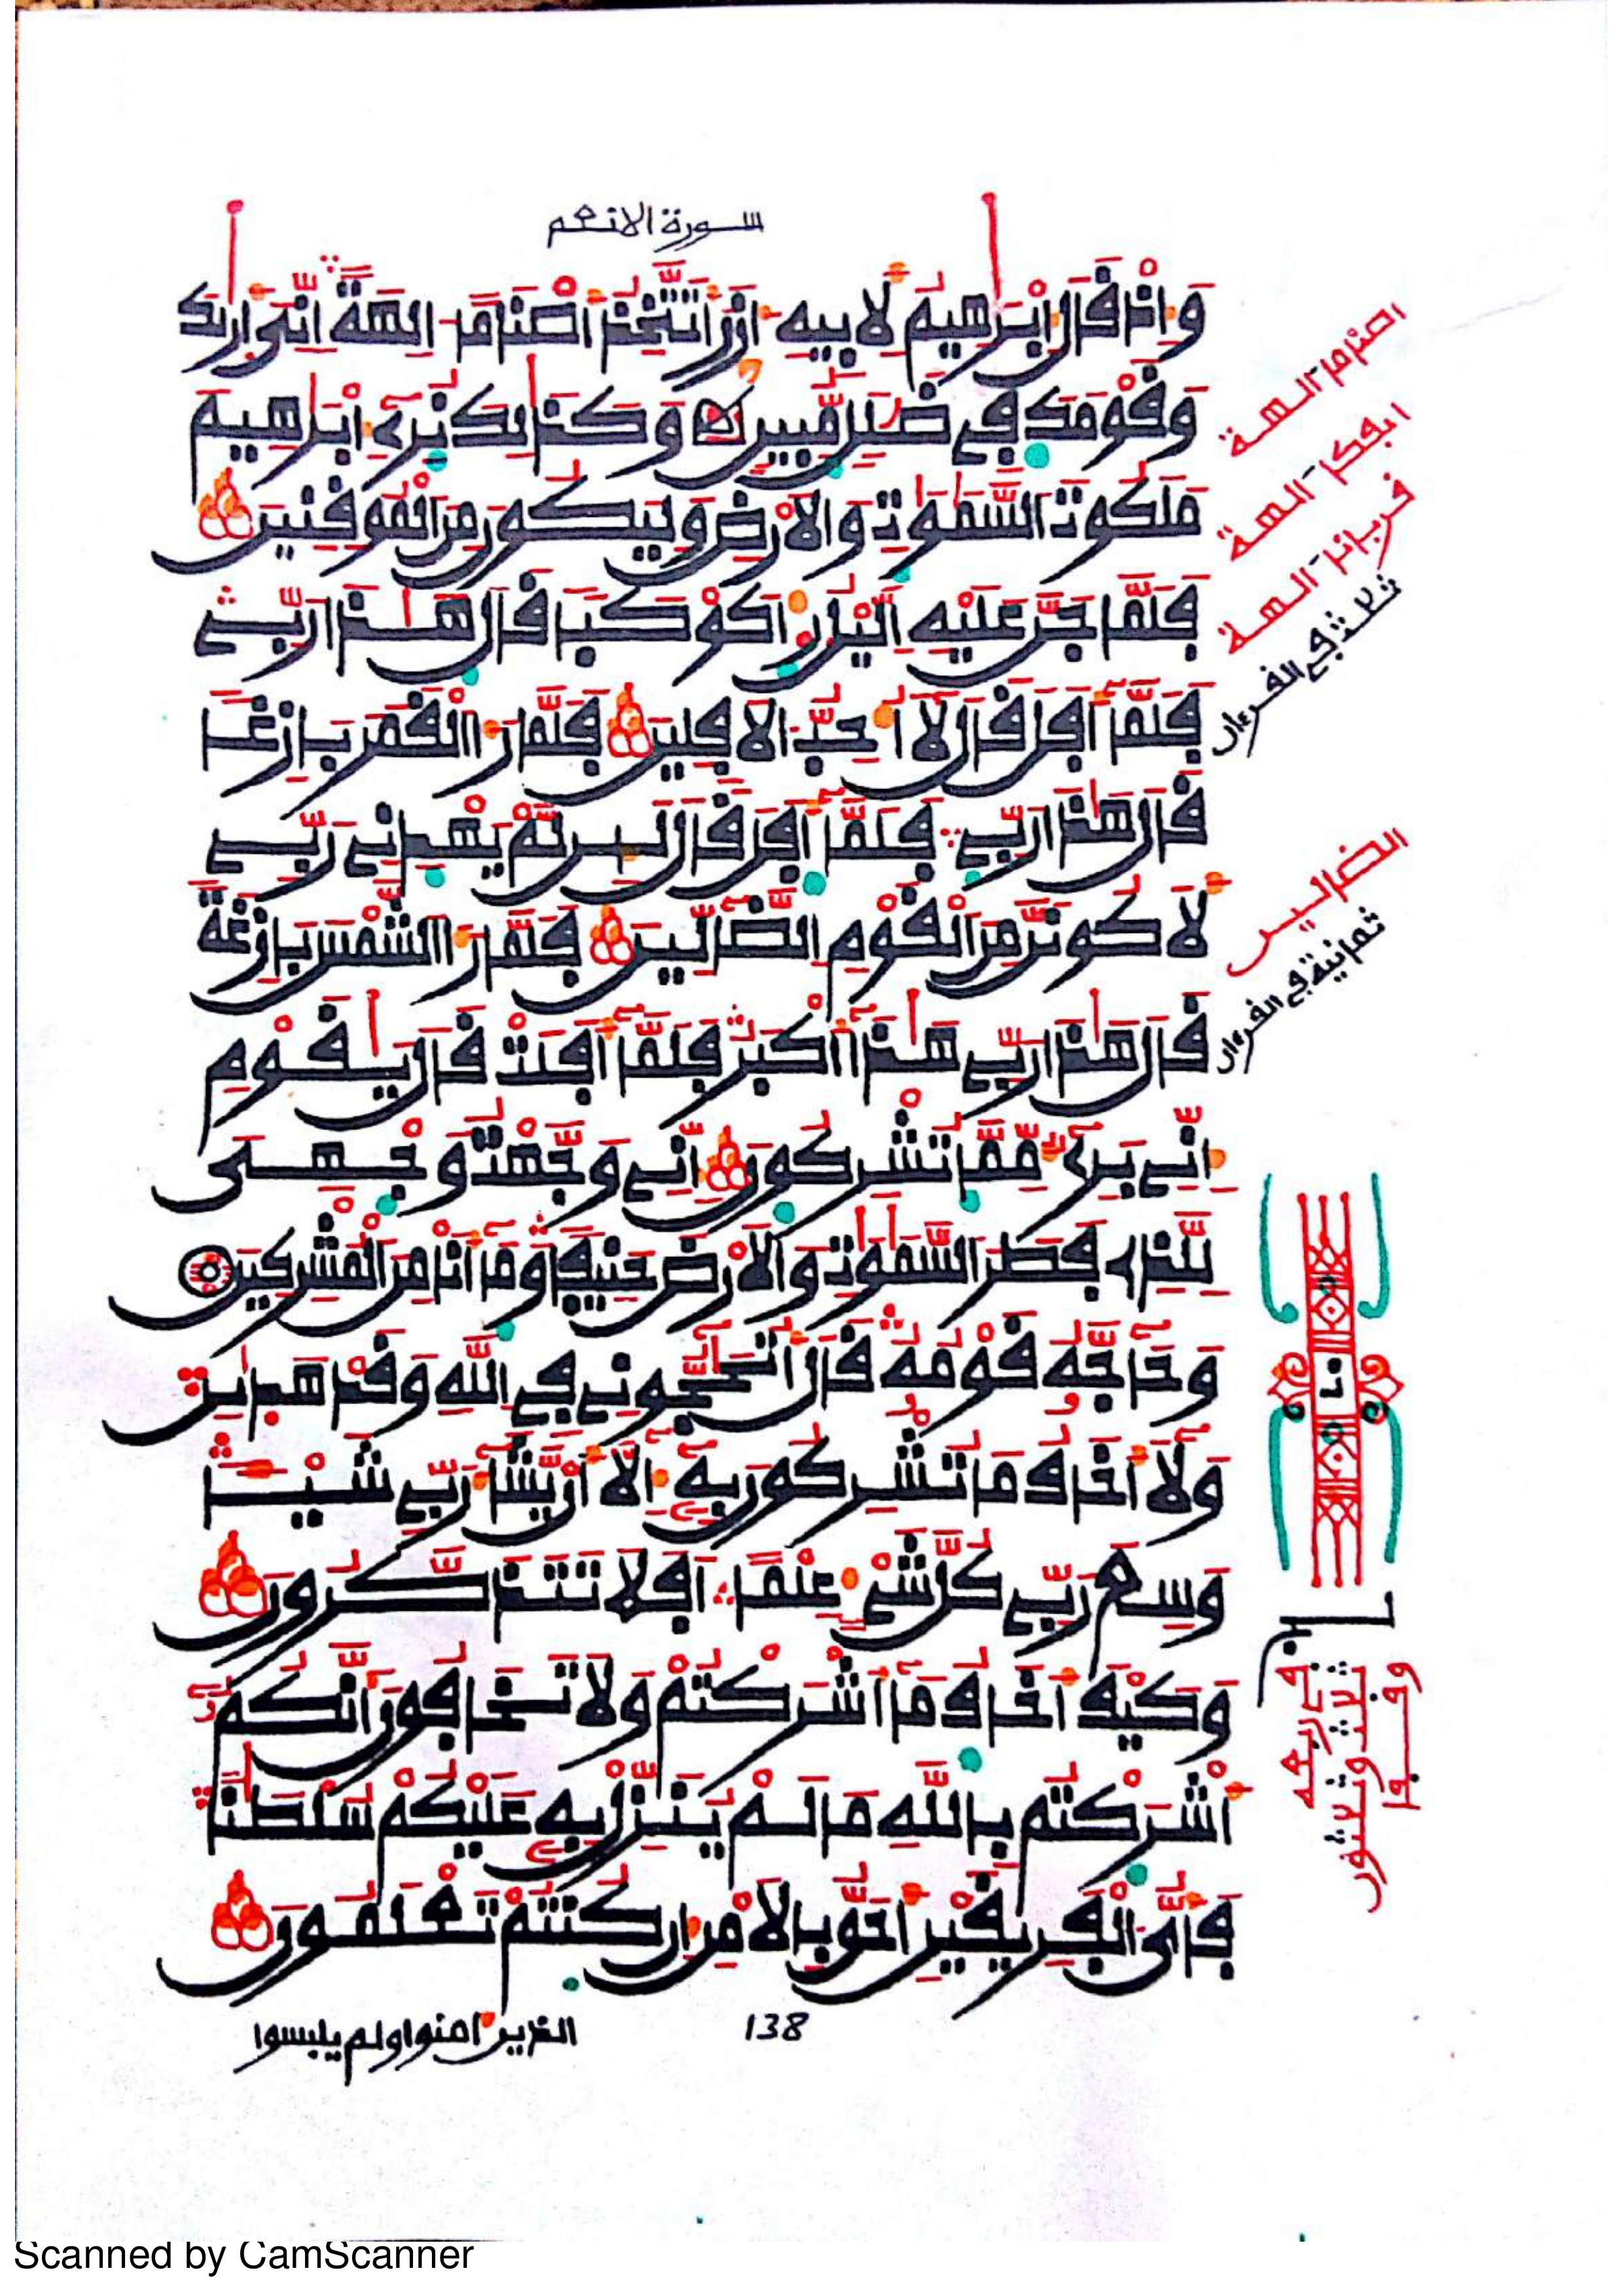 سورة الانعم
وَإِذْ قَالَ إِبْرَٰهِيمُ لِأَبِيهِ ءَازَرَ أَتَتَّخِذُ أَصْنَامًا ـالِهَةً إِنِّيَ أَرَىٰكَ
وَقَوْمَكَ فِي ضَلَٰلٍ مُّبِينٍ وَكَذَٰلِكَ نُرِي إِبْرَٰهِيمَ
مَلَكُوتَ السَّمَٰوَٰتِ وَالْأَرْضِ وَلِيَكُونَ مِنَ الْمُوقِنِينَ
فَلَمَّا جَنَّ عَلَيْهِ الَّيْلُ رَءَا كَوْكَبًا قَالَ هَٰذَا رَبِّي
فَلَمَّا أَفَلَ قَالَ لَا أُحِبُّ الْأَفِلِينَ فَلَمَّا رَءَا الْقَمَرَ بَازِغًا
قَالَ هَٰذَا رَبِّي فَلَمَّا أَفَلَ قَالَ لَئِن لَّمْ يَهْدِنِي رَبِّي
لَأَكُونَنَّ مِنَ الْقَوْمِ الضَّالِّينَ فَلَمَّا رَءَا الشَّمْسَ بَازِغَةً
قَالَ هَٰذَا رَبِّي هَٰذَا أَكْبَرُ فَلَمَّا أَفَلَتْ قَالَ يَٰقَوْمِ
إِنِّي بَرِيءٌ مِّمَّا تُشْرِكُونَ إِنِّي وَجَّهْتُ وَجْهِيَ
لِلَّذِي فَطَرَ السَّمَٰوَٰتِ وَالْأَرْضَ حَنِيفًا وَمَا أَنَا مِنَ الْمُشْرِكِينَ
وَحَاجَّهُ قَوْمُهُ قَالَ أَتُحَٰجُّونِي فِي اللَّهِ وَقَدْ هَدَىٰنِ
وَلَا أَخَافُ مَا تُشْرِكُونَ بِهِ إِلَّا أَن يَّشَاءَ رَبِّي شَيْـًٔا
وَسِعَ رَبِّي كُلَّ شَيْءٍ عِلْمًا أَفَلَا تَتَذَكَّرُونَ
وَكَيْفَ أَخَافُ مَا أَشْرَكْتُمْ وَلَا تَخَافُونَ أَنَّكُمُ
أَشْرَكْتُم بِاللَّهِ مَا لَمْ يُنَزِّلْ بِهِ عَلَيْكُمْ سُلْطَٰنًا
فَأَيُّ الْفَرِيقَيْنِ أَحَقُّ بِالْأَمْنِ إِن كُنتُمْ تَعْلَمُونَ
138
الذين ءامنوا ولم يلبسوا
اصناما ـالهة
ايفكا ـالهة
قربانا ـالهة
ثلاثة في القرءان
الضالين
ثمانية في القرءان
Scanned by CamScanner